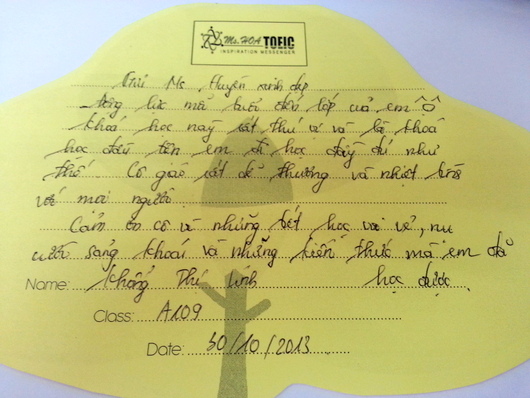 Ms. HOA TOEIC
INSPIRATION MESSENGER
Gửi Ms Huyền xinh đẹp
Động lực mỗi buổi đến lớp của em
khoá học này rất thú vị và là khoá
học đầu tiên em đi học đầy đủ như
thế. Cô giáo rất dễ thương và nhiệt tình
với mọi người.
Cảm ơn cô vì những tiết học vui vẻ, nụ
cười sảng khoái và những kiến thức mà em đã
học được
Name: Khổng Thị
Class: A109
Date: 30/10/2013